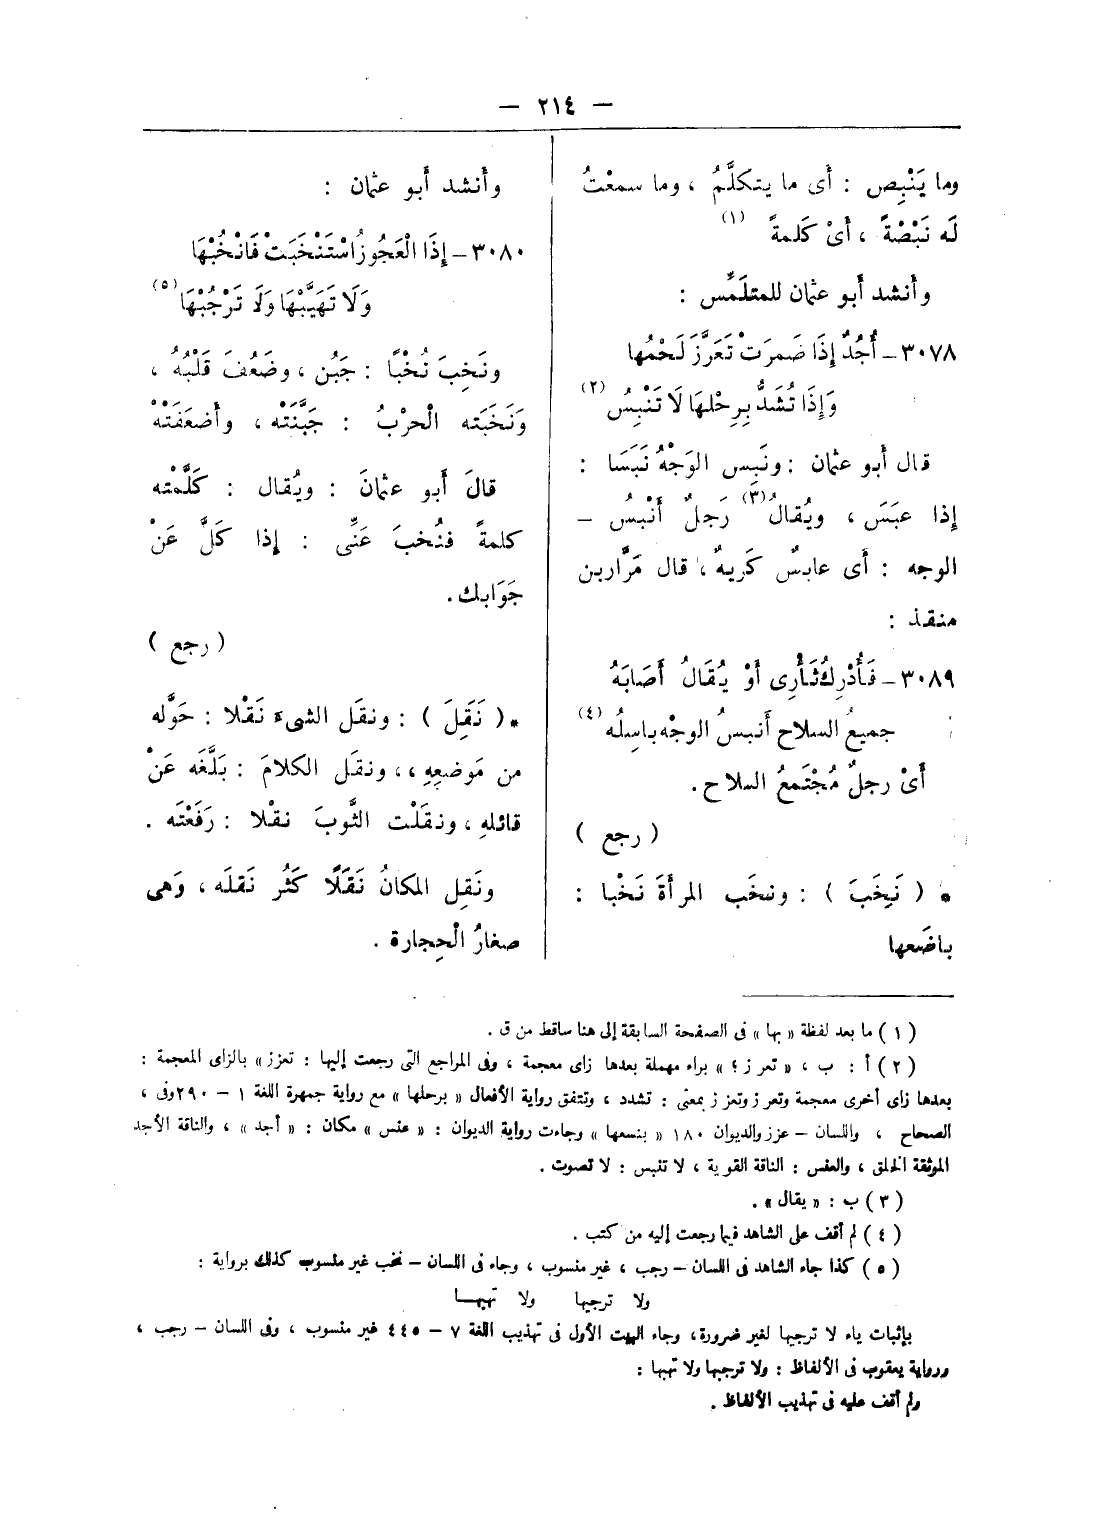 — ٢١٤ —
وما يَنْبِص : أَى ما يتكلَّمُ ، وما سمعْتُ
لَه نَبْصْةً ، أَىْ كَلمةً (١)
وأَنشد أَبو عثمان للمتلَمِّس :
٣٠٧٨ – أُجُدٌ إِذَا ضَمرَتْ تَعَرَّزَ لَحْمُها
وَإِذَا تُشَدُّ بِرِحْلهَا لَا تَنْبِسُ (٢)
قال أَبو عثمان : ونَبِس الوَجْهُ نَبَسَا :
إِذا عبَسَ ، ويُقالُ (٣) رَجلٌ أَنْبسُ –
الوجه : أَى عابسٌ كَرِيهٌ ، قال مَرَّار بن
منقذ :
٣٠٨٩ – فَأَدْرِكْ ثَأْرِى أَوْ يُقَالُ أَصَابَهُ
جميعُ السلاح أَنبسُ الوجْه باسِلُه (٤)
أَىْ رجلٌ مُجْتَمعُ السلاح .
( رجع )
* ( نَخَبَ ) : ونخَب المرأَةَ نَخْبا :
باضَعها
وأَنشد أَبو عثمان :
٣٠٨٠ – إِذَا الْعَجُوزُ اسْتَنْخَبَتْ فَانْخُبْهَا
وَلَا تَهَيَّبْهَا وَلَا تَرْجُبْهَا (٥)
ونَخِبَ نُخْبًا : جَبُن ، وضَعُفَ قَلْبُهُ ،
وَنَخَبَته الْحرْبُ : جَبَّنَتْه ، وأَضعَفَتْهْ
قالَ أَبو عثمانَ : ويُقال : كَلَّمْته
كلمةً فنُخبَ عَنِّى : إِذا كَلَّ عَنْ
جَوَابك .
( رجع )
* ( نَقَلَ ) : ونقَل الشىءَ نَقْلا : حَوَّله
من مَوضعِهِ ، ، ونقَل الكلامَ : بَلَّغَه عَنْ
قائلهِ ، ونقَلْت الثَّوبَ نقْلا : رَقَعْتَه .
ونَقِل المكانُ نَقَلًا كَثُر نَقلَه ، وَهى
صغارُ الْحِجارة .
( ١ ) ما بعد لفظة « بها » فى الصفحة السابقة إلى هنا ساقط من ق .
( ٢ ) أ : ب ، « تعرز ؟ » براء مهملة بعدها زاى معجمة ، وفى المراجع التى رجعت إليها : تعزز » بالزاى المعجمة :
بعدها زاى أخرى معجمة وتعرز وتعزز بمعنى : تشدد ، وتتفق رواية الأفعال « برحلها » مع رواية جمهرة اللغة ١ – ٢٩٠ وفى ،
الصحاح ، واللسان – عزز والديوان ١٨٠ « بنسعها » وجاءت رواية الديوان : « عنس » مكان : « أجد » ، والناقة الأجد
الموثقة الخلق ، والعنس : الناقة القوية ، لا تنبس : لا تصوت .
( ٣ ) ب : « يقال » .
( ٤ ) لم أقف على الشاهد فيما رجعت إليه من كتب .
( ٥ ) كذا جاء الشاهد فى اللسان – رجب ، غير منسوب ، وجاء فى اللسان – نخب غير منسوب كذلك برواية :
ولا ترجيها ولا تهبهـــا
بإثبات ياء لا ترجيها لغير ضرورة ، وجاء البيت الأول فى تهذيب اللغة ٧ – ٤٤٥ غير منسوب ، وفى اللسان – رجب ،
ورواية يعقوب فى الألفاظ : ولا ترجبها ولا تهبها :
ولم أقف عليه فى تهذيب الألفاظ .